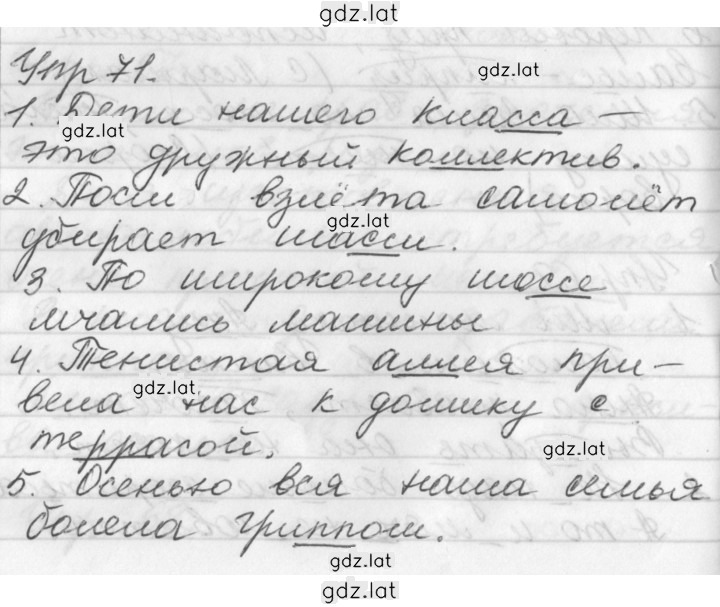 gdz.lat
Упр 71.
gdz.lat
1. Дети нашего класса –
gdz.lat
это дружный коллектив.
2. После взлёта самолёт
gdz.lat
убирает шасси.
3. По широкому шоссе
мчались машины
4. Тенистая аллея при-
gdz.lat
вела нас к домику с
террасой.
gdz.lat
5. Осенью вся наша семья
болела гриппом.
gdz.lat
gdz.lat